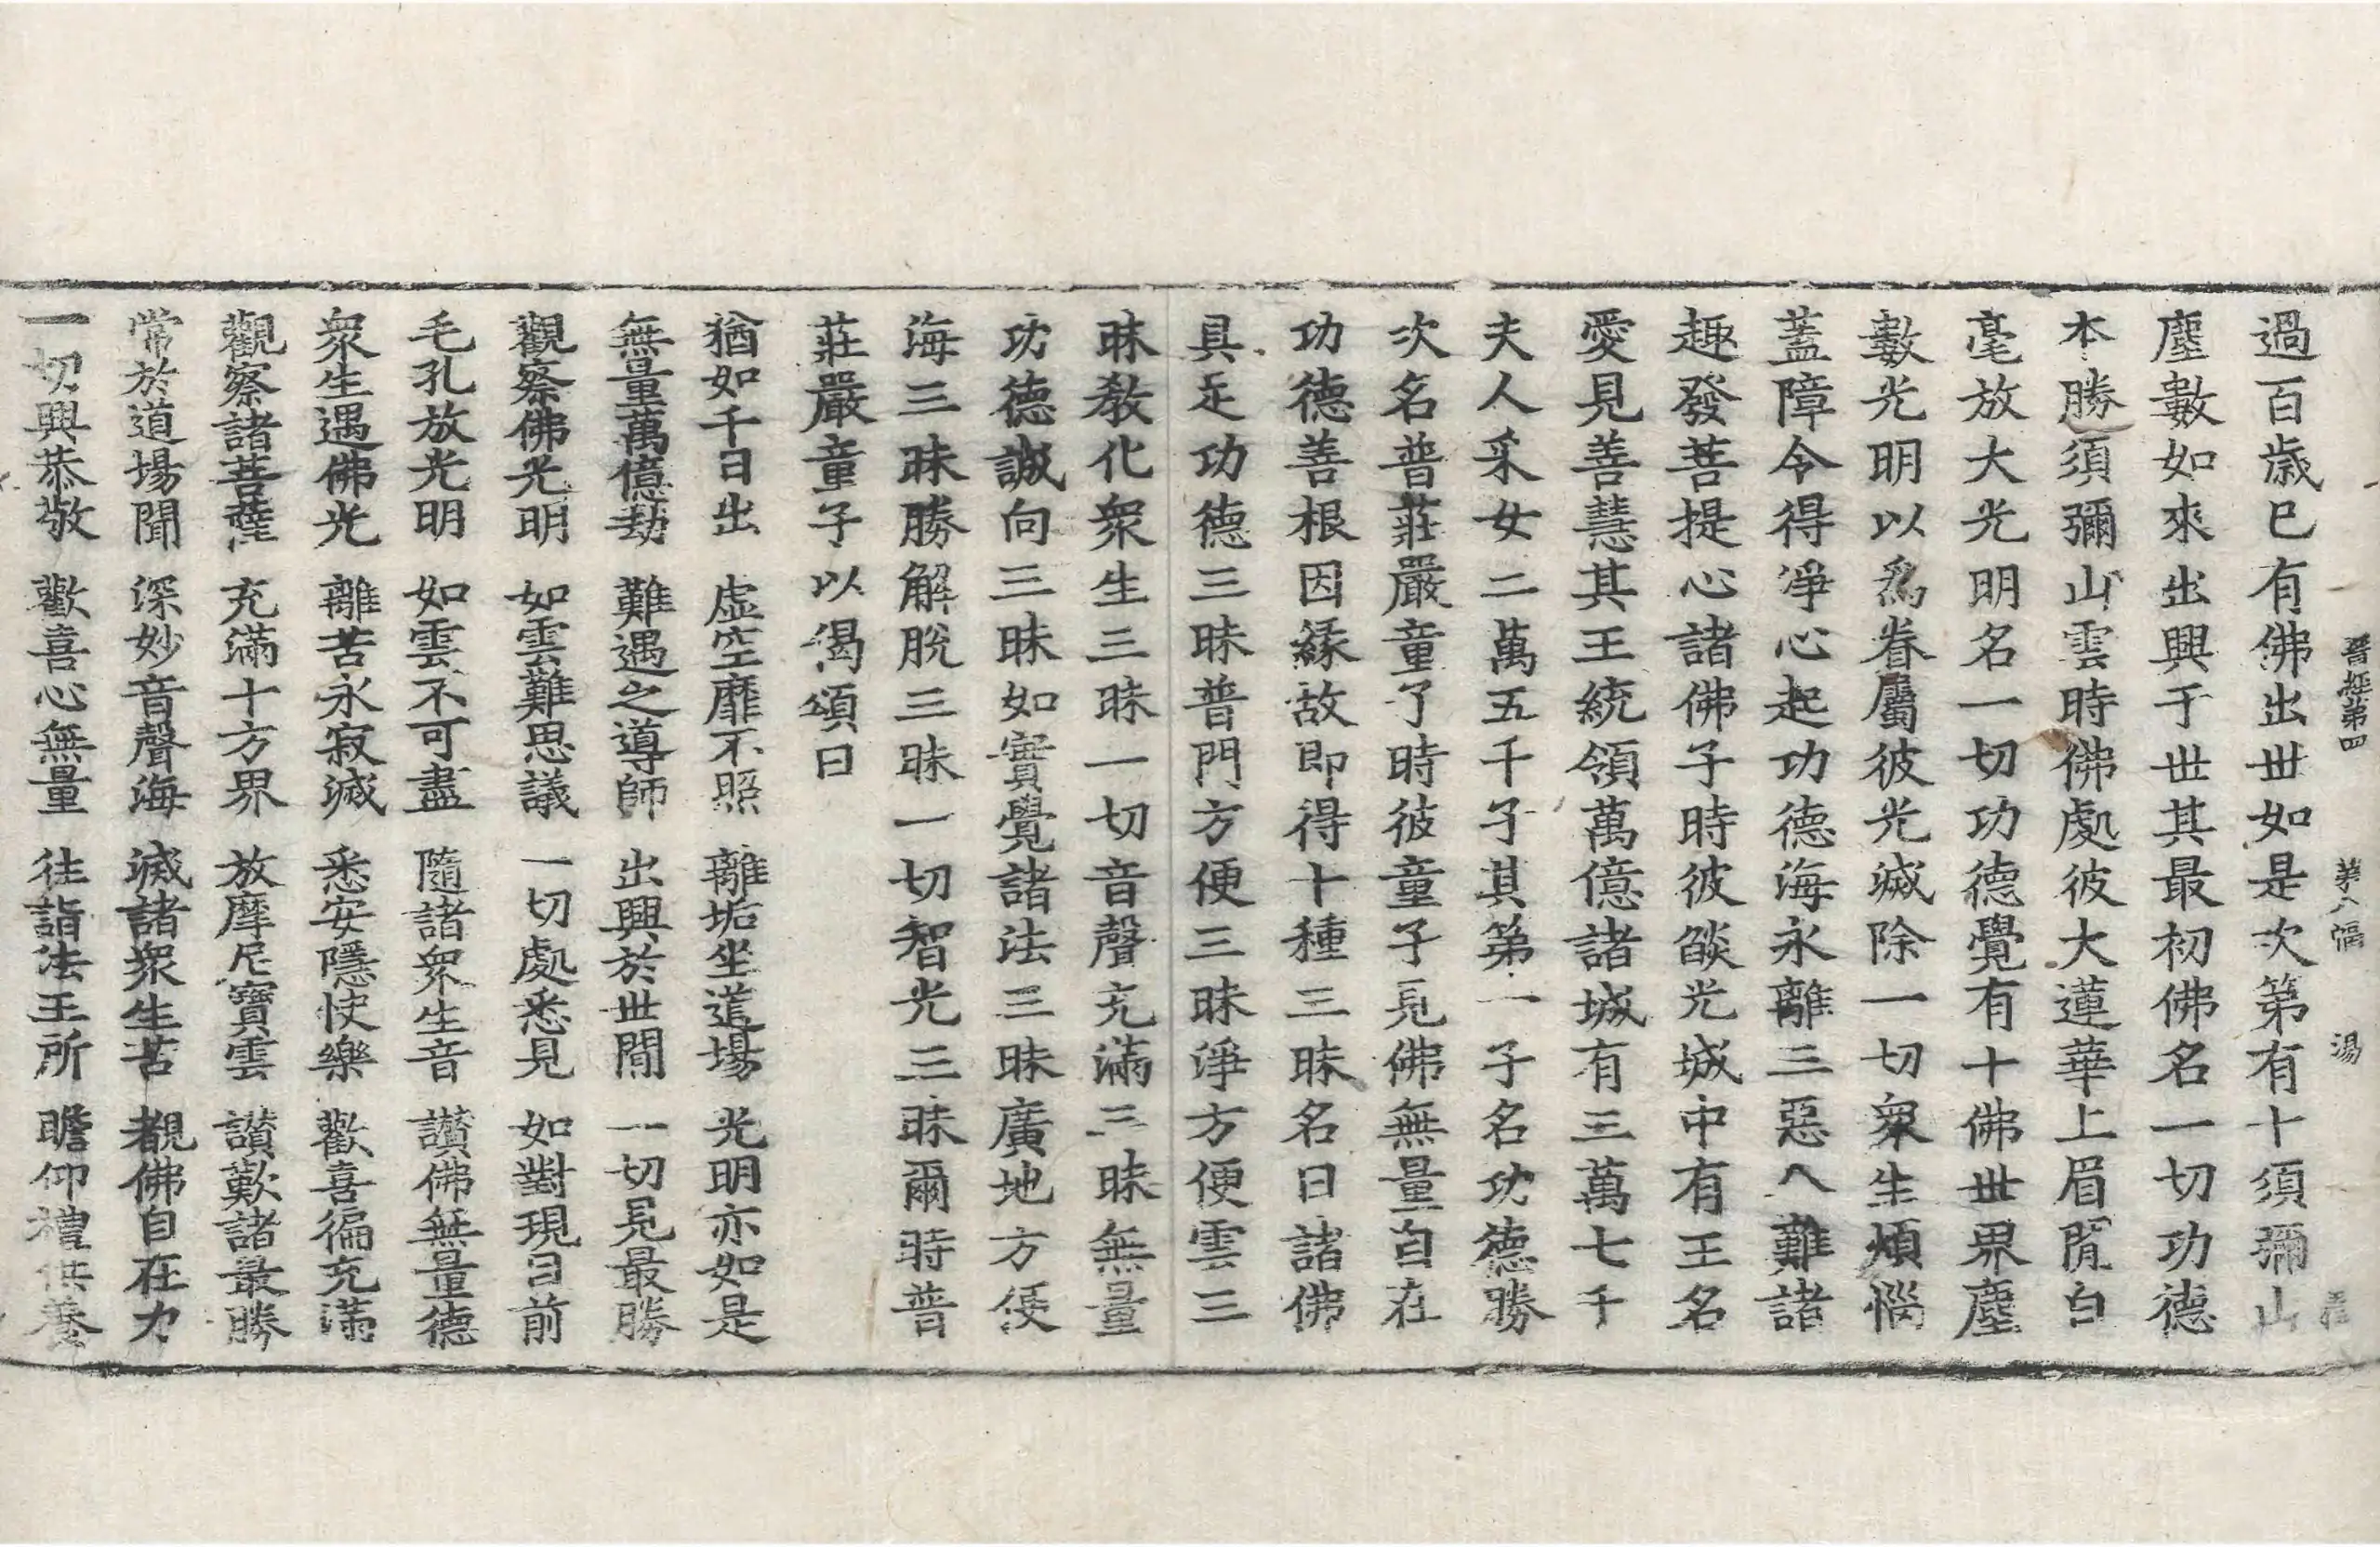 晉經第四 第八幅 湯
過百歲已有佛出世如是次第有十須彌山
塵數如來出興于世其最初佛名一切功德
本勝須彌山雲時佛處彼大蓮華上眉間白
毫放大光明名一切功德覺有十佛世界塵
數光明以爲眷屬彼光滅除一切衆生煩惱
蓋障令得淨心起功德海永離三惡八難諸
趣發菩提心諸佛子時彼燄光城中有王名
愛見善慧其王統領萬億諸城有三萬七千
夫人采女二萬五千子其第一子名功德勝
次名普莊嚴童子時彼童子見佛無量自在
功德善根因緣故即得十種三昧名曰諸佛
具足功德三昧普門方便三昧淨方便雲三
昧教化衆生三昧一切音聲充滿三昧無量
功德誠向三昧如實覺諸法三昧廣地方便
海三昧勝解脫三昧一切智光三昧爾時普
莊嚴童子以偈頌曰
猶如千日出 虛空靡不照 離垢坐道場 光明亦如是
無量萬億劫 難遇之導師 出興於世間 一切見最勝
觀察佛光明 如雲難思議 一切處悉見 如對現目前
毛孔放光明 如雲不可盡 隨諸衆生音 讃佛無量德
衆生遇佛光 離苦永寂滅 悉安隱快樂 歡喜徧充滿
觀察諸菩薩 充滿十方界 放摩尼寶雲 讃歎諸最勝
常於道場聞 深妙音聲海 滅諸衆生苦 覩佛自在力
一切興恭敬 歡喜心無量 往詣法王所 瞻仰禮供養